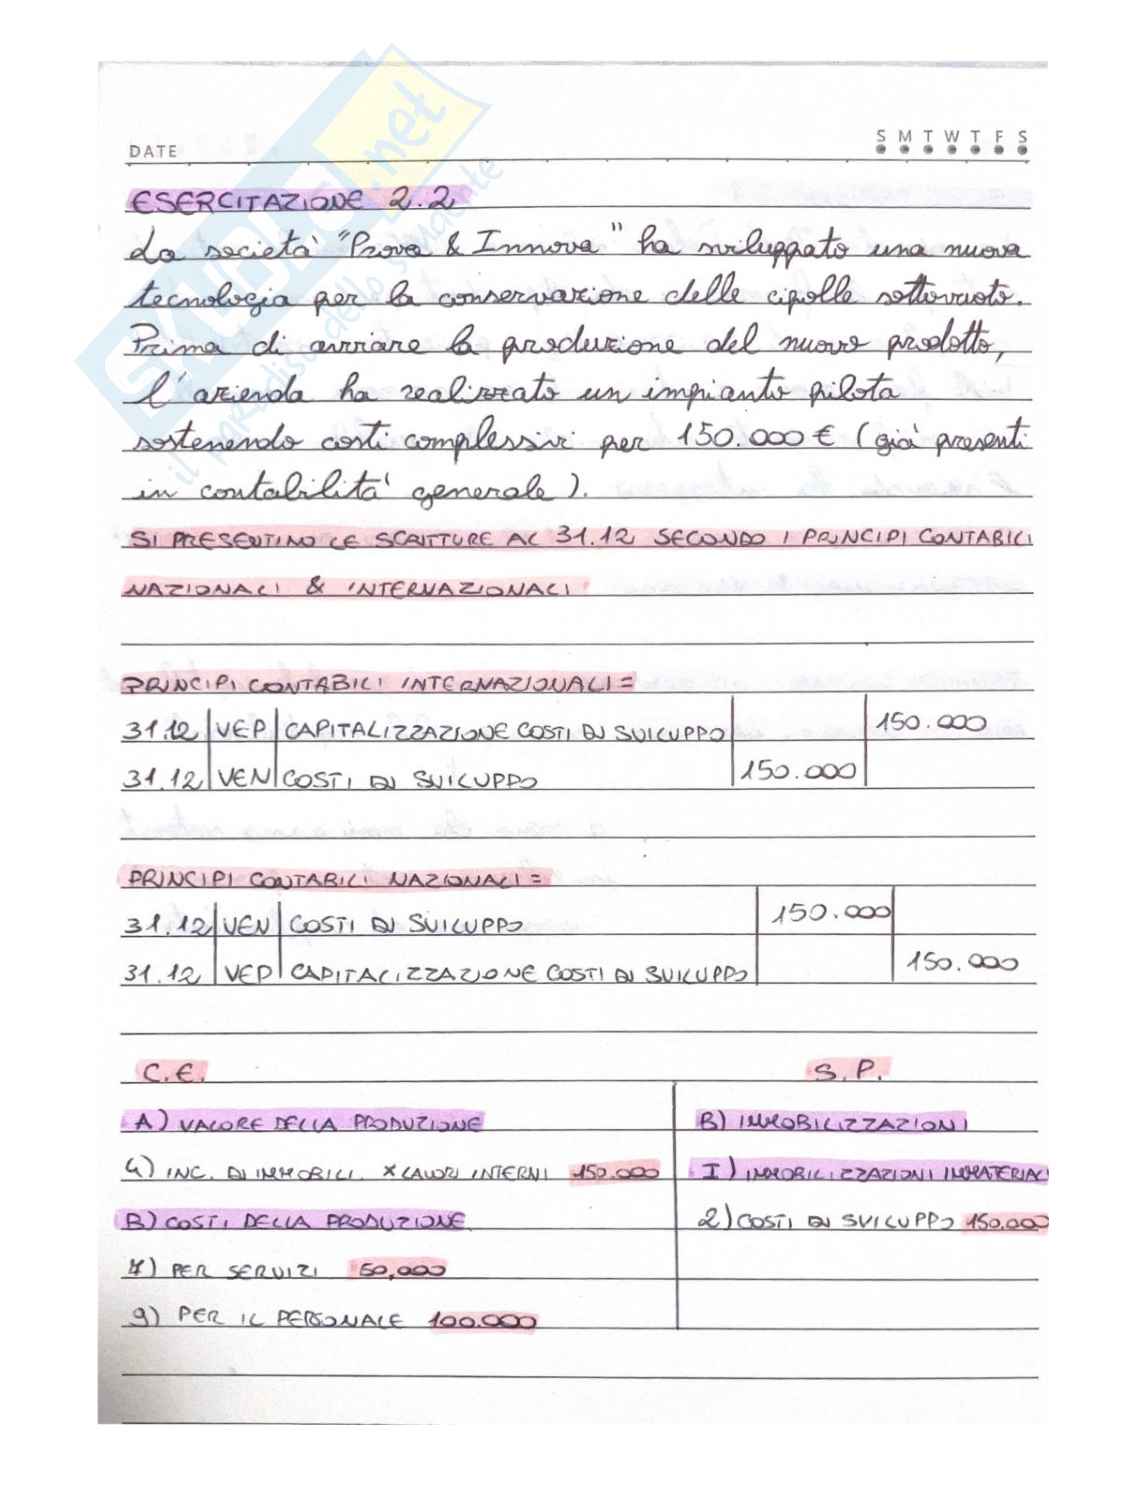 DATE
S M T W T F S
ESERCITAZIONE 2.2
La società "Prova & Innova" ha sviluppato una nuova
tecnologia per la conservazione delle cipolle sottovuoto.
Prima di avviare la produzione del nuovo prodotto,
l'azienda ha realizzato un impianto pilota
sostenendo costi complessivi per 150.000 € (già presenti
in contabilità generale).
SI PRESENTINO LE SCRITTURE AL 31.12 SECONDO I PRINCIPI CONTABILI
NAZIONALI & INTERNAZIONALI
PRINCIPI CONTABILI INTERNAZIONALI =
31.12 VEP CAPITALIZZAZIONE COSTI DI SVILUPPO 150.000
31.12 VEN COSTI DI SVILUPPO 150.000
PRINCIPI CONTABILI NAZIONALI =
31.12 VEN COSTI DI SVILUPPO 150.000
31.12 VEP CAPITALIZZAZIONE COSTI DI SVILUPPO 150.000
C.E. S.P.
A) VALORE DELLA PRODUZIONE B) IMMOBILIZZAZIONI
4) INC. DI IMMOBILI. X LAVORI INTERNI 150.000 I) IMMOBILIZZAZIONI IMMATERIAL
B) COSTI DELLA PRODUZIONE 2) COSTI DI SVILUPPO 150.000
7) PER SERVIZI 50,000
9) PER IL PERSONALE 100.000
SKUOLA.net
il paradiso dello studente